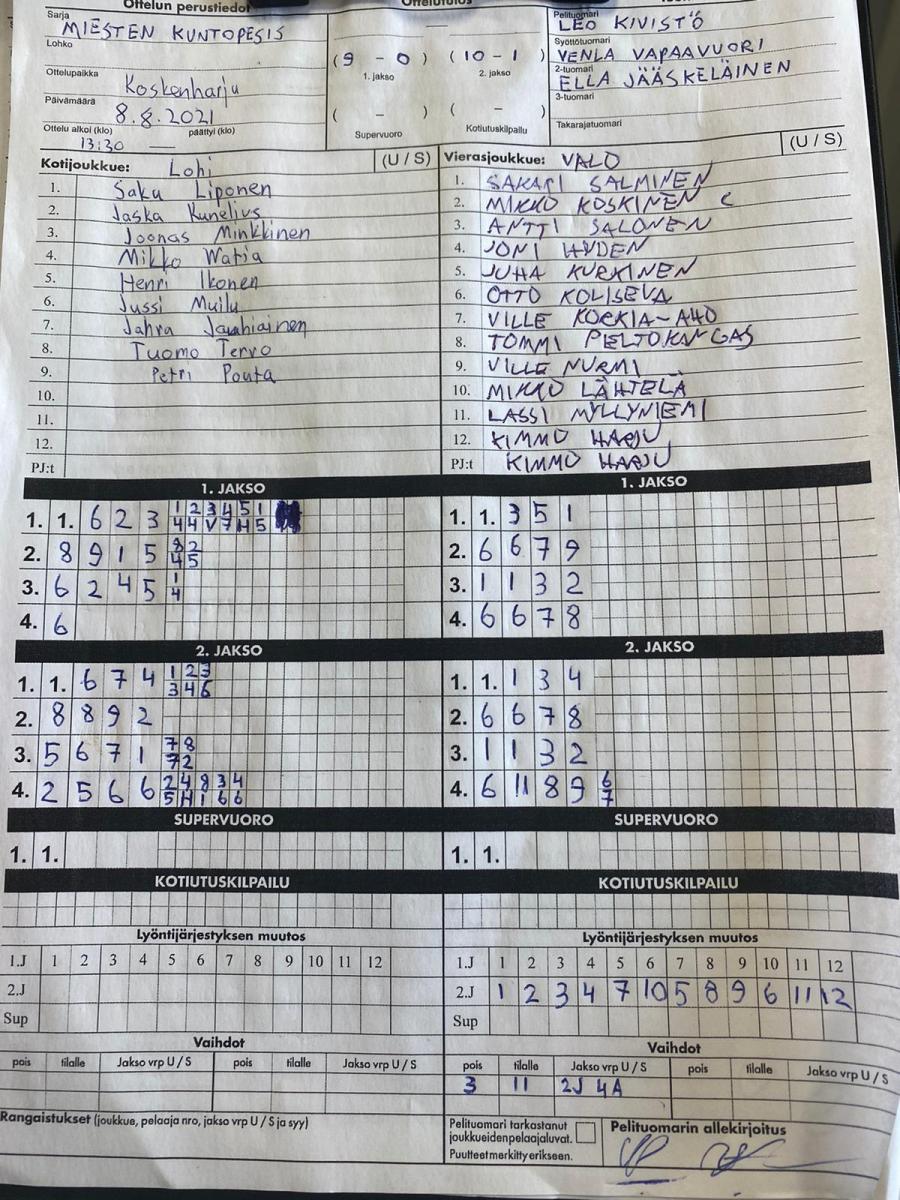 Ottelun perustiedot
Sarja
MIESTEN KUNTOPESIS
Lohko
Ottelupaikka
Koskenharju
Päivämäärä
8.8.2021
Ottelu alkoi (klo) päättyi (klo)
13:30 —
Ottelutulos
—
(9 - 0) (10 - 1)
1. jakso 2. jakso
( - ) ( - )
Supervuoro Kotiutuskilpailu
Pelituomari
LEO KIVISTÖ
Syöttötuomari
VENLA VAPAAVUORI
2-tuomari
ELLA JÄÄSKELÄINEN
3-tuomari
Takarajatuomari
Kotijoukkue: Lohi (U / S)
1. Saku Liponen
2. Jaska Kunelius
3. Joonas Minkkinen
4. Mikko Watia
5. Henri Ikonen
6. Jussi Muilu
7. Jahra
8. Tuomo Tervo
9. Petri Pouta
10.
11.
12.
PJ:t
Vierasjoukkue: VALO (U / S)
1. SAKARI SALMINEN
2. MIKKO KOSKINEN C
3. ANTTI SALONEN
4. JONI HYDEN
5. JUHA KURKINEN
6. OTTO KOLISEVA
7. VILLE KORKIA-AHO
8. TOMMI PELTOKANGAS
9. VILLE NURMI
10. MIKKO LÄHTELÄ
11. LASSI MYLLYNIEMI
12. KIMMO HARJU
PJ:t KIMMO HARJU
1. JAKSO
1. 1. 6 2 3 1 2 3 4 5 1
4 4 V 7 H 5
2. 8 9 1 5 8 2
4 5
3. 6 2 4 5 1
4
4. 6
1. JAKSO
1. 1. 3 5 1
2. 6 6 7 9
3. 1 1 3 2
4. 6 6 7 8
2. JAKSO
1. 1. 6 7 4 1 2 3
3 4 6
2. 8 8 9 2
3. 5 6 7 1 7 8
7 2
4. 2 5 6 6 2 4 8 3 4
5 H 1 6 6
2. JAKSO
1. 1. 1 3 4
2. 6 6 7 8
3. 1 1 3 2
4. 6 11 8 9 6
7
SUPERVUORO
1. 1.
SUPERVUORO
1. 1.
KOTIUTUSKILPAILU
KOTIUTUSKILPAILU
Lyöntijärjestyksen muutos
1.J 1 2 3 4 5 6 7 8 9 10 11 12
2.J
Sup
Lyöntijärjestyksen muutos
1.J 1 2 3 4 5 6 7 8 9 10 11 12
2.J 1 2 3 4 7 10 5 8 9 6 11 12
Sup
Vaihdot
pois tilalle Jakso vrp U / S pois tilalle Jakso vrp U / S
Vaihdot
pois tilalle Jakso vrp U / S pois tilalle Jakso vrp U / S
3 11 2J 4A
Rangaistukset (joukkue, pelaaja nro, jakso vrp U / S ja syy)
Pelituomari tarkastanut
joukkueiden pelaajaluvat.
Puutteet merkitty erikseen.
Pelituomarin allekirjoitus